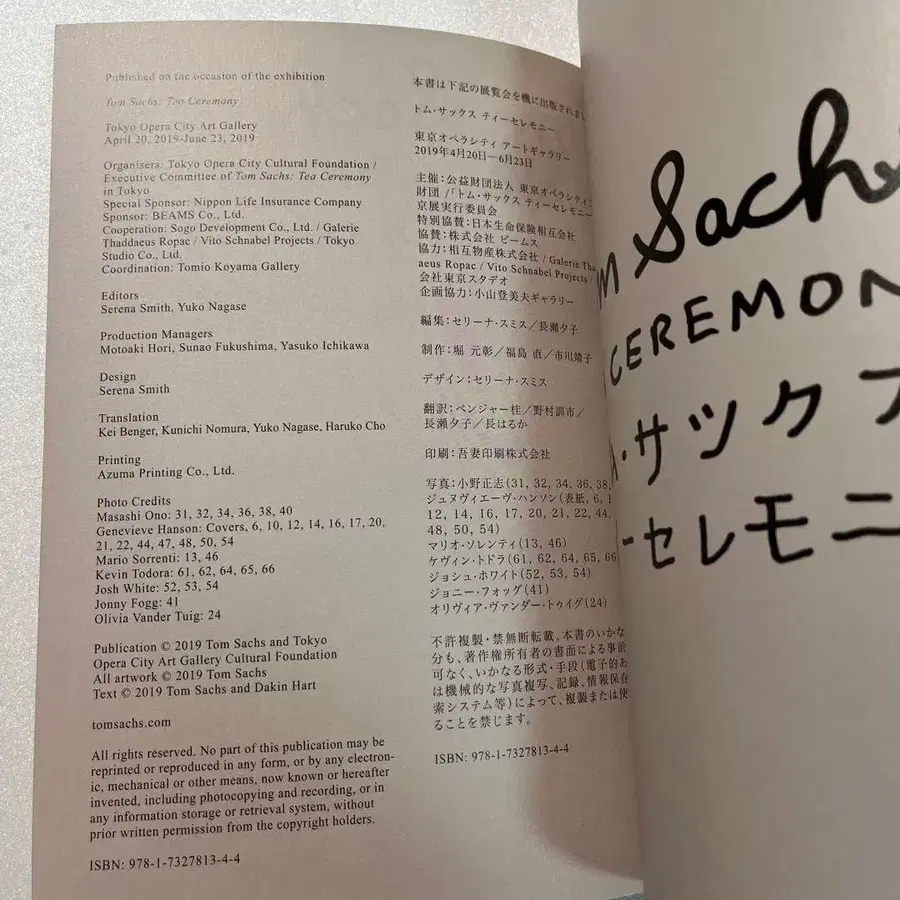 Published on the occasion of the exhibition
Tom Sachs: Tea Ceremony
Tokyo Opera City Art Gallery
April 20, 2019-June 23, 2019
Organisers: Tokyo Opera City Cultural Foundation /
Executive Committee of Tom Sachs: Tea Ceremony
in Tokyo
Special Sponsor: Nippon Life Insurance Company
Sponsor: BEAMS Co., Ltd.
Cooperation: Sogo Development Co., Ltd. / Galerie
Thaddaeus Ropac / Vito Schnabel Projects / Tokyo
Studio Co., Ltd.
Coordination: Tomio Koyama Gallery
Editors
Serena Smith, Yuko Nagase
Production Managers
Motoaki Hori, Sunao Fukushima, Yasuko Ichikawa
Design
Serena Smith
Translation
Kei Benger, Kunichi Nomura, Yuko Nagase, Haruko Cho
Printing
Azuma Printing Co., Ltd.
Photo Credits
Masashi Ono: 31, 32, 34, 36, 38, 40
Genevieve Hanson: Covers, 6, 10, 12, 14, 16, 17, 20,
21, 22, 44, 47, 48, 50, 54
Mario Sorrenti: 13, 46
Kevin Todora: 61, 62, 64, 65, 66
Josh White: 52, 53, 54
Jonny Fogg: 41
Olivia Vander Tuig: 24
Publication © 2019 Tom Sachs and Tokyo
Opera City Art Gallery Cultural Foundation
All artwork © 2019 Tom Sachs
Text © 2019 Tom Sachs and Dakin Hart
tomsachs.com
All rights reserved. No part of this publication may be
reprinted or reproduced in any form, or by any electron-
ic, mechanical or other means, now known or hereafter
invented, including photocopying and recording, or in
any information storage or retrieval system, without
prior written permission from the copyright holders.
ISBN: 978-1-7327813-4-4
本書は下記の展覧会を機に出版されまし
トム・サックス ティーセレモニー
東京オペラシティ アートギャラリー
2019年4月20日—6月23日
主催：公益財団法人 東京オペラシティ
財団／「トム・サックス ティーセレモニー
京展実行委員会
特別協賛：日本生命保険相互会社
協賛：株式会社 ビームス
協力：相互物産株式会社 / Galerie Tha
aeus Ropac / Vito Schnabel Projects /
会社東京スタデオ
企画協力：小山登美夫ギャラリー
編集：セリーナ・スミス／長瀬夕子
制作：堀 元彰／福島 直／市川靖子
デザイン：セリーナ・スミス
翻訳：ベンジャー桂／野村訓市／
長瀬夕子／長はるか
印刷：吾妻印刷株式会社
写真：小野正志(31, 32, 34, 36, 38,
ジュヌヴィエーヴ・ハンソン(表紙, 6, 1
12, 14, 16, 17, 20, 21, 22, 44,
48, 50, 54)
マリオ・ソレンティ(13, 46)
ケヴィン・トドラ(61, 62, 64, 65, 66
ジョシュ・ホワイト(52, 53, 54)
ジョニー・フォッグ(41)
オリヴィア・ヴァンダー・トゥイグ(24)
不許複製・禁無断転載。本書のいかな
分も、著作権所有者の書面による事前
可なく、いかなる形式・手段(電子的あ
は機械的な写真複写、記録、情報保存
索システム等)によって、複製または使
ることを禁じます。
ISBN: 978-1-7327813-4-4
m Sachs
CEREMON
ム・サックス
ーセレモニ